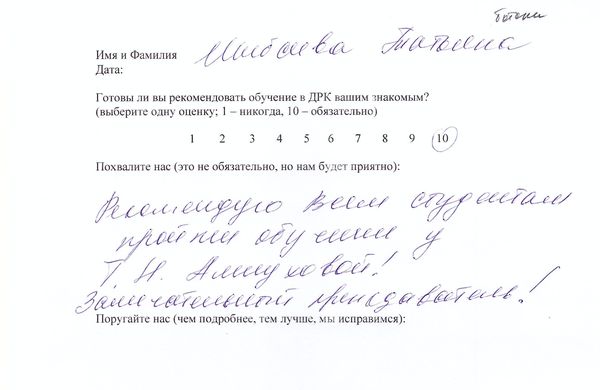 Имя и Фамилия Татьяна
Дата:
Готовы ли вы рекомендовать обучение в ДРК вашим знакомым?
(выберите одну оценку; 1 – никогда, 10 – обязательно)
1 2 3 4 5 6 7 8 9 10
Похвалите нас (это не обязательно, но нам будет приятно):
Рекомендую всем студентам
пройти обучение у
Т. Н.
Замечательный преподаватель!
Поругайте нас (чем подробнее, тем лучше, мы исправимся):